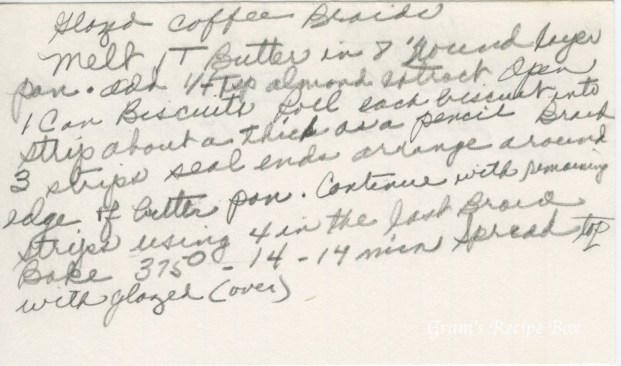 Glazed Coffee Braids
Melt 1 T Butter in 8" round layer
pan. add 1/4 Tsp almond extract Open
1 Can Biscuits Roll each biscuit into
strip about a thick as a pencil Braid
3 strips seal ends arrange around
edge of butter pan. Continue with remaining
strips using 4 in the last Braid
Bake 375° - 14 - 14 min Spread top
with glazed (over)
Gram's Recipe Box